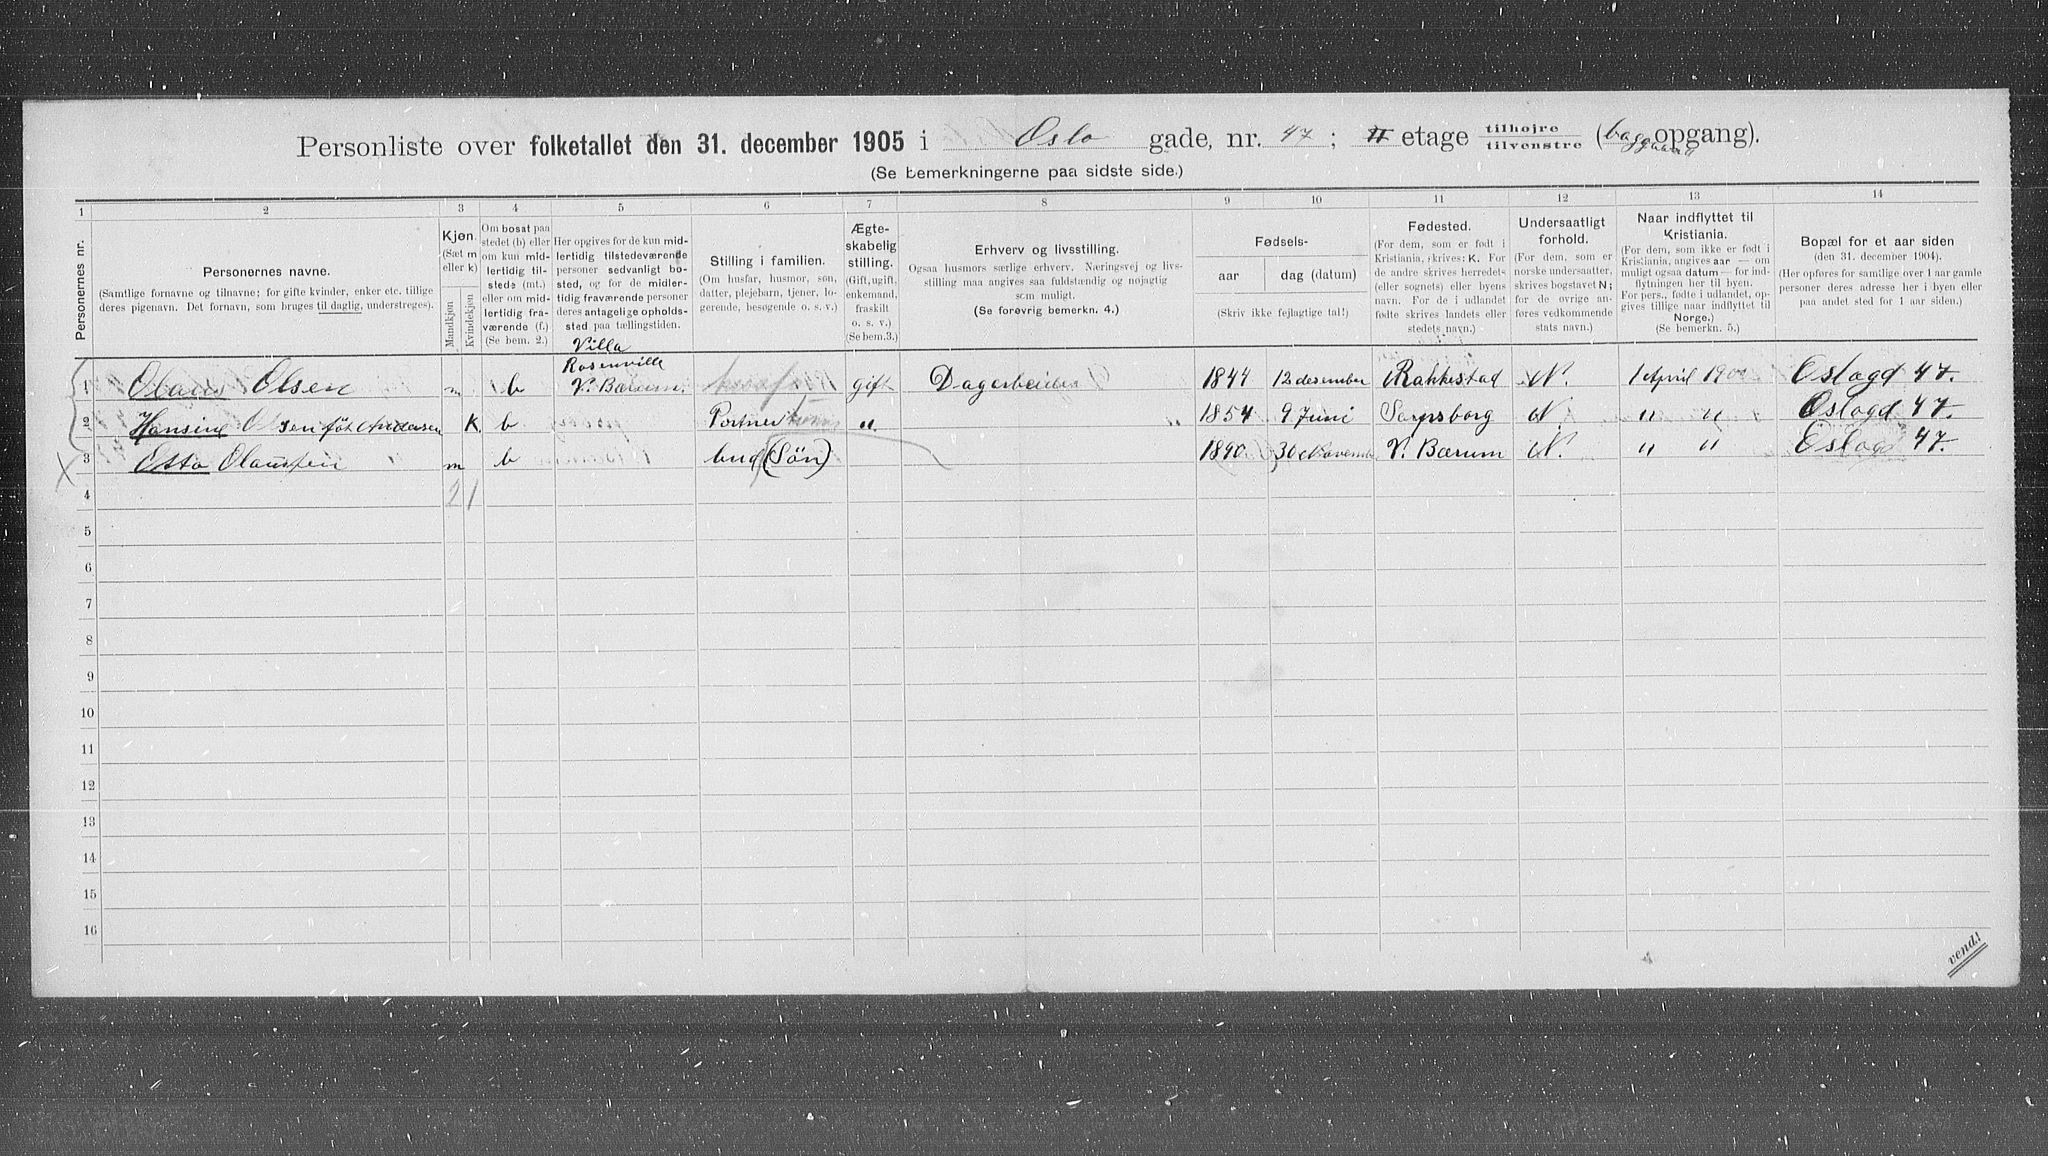 Personliste over folketallet den 31. december 1905 i Oslo gade, nr. 47; II etage tilhøjre / tilvenstre (baggaard opgang).
(Se bemerkningerne paa sidste side.)
1 2 3 4 5 6 7 8 9 10 11 12 13 14
Personernes nr.
Personernes navne.
(Samtlige fornavne og tilnavne; for gifte kvinder, enker etc. tillige
deres pigenavn. Det fornavn, som bruges til daglig, understreges).
Kjøn.
(Sæt m
eller k)
Mandkjøn
Kvindekjøn
Om bosat paa
stedet (b) eller
om kun mid-
lertidig til-
stede (mt.)
eller om mid-
lertidig fra-
værende (f.)
(Se bem. 2.)
Her opgives for de kun mid-
lertidig tilstedeværende
personer sedvanligt bo-
sted, og for de midler-
tidig fraværende personer
deres antagelige opholds-
sted paa tællingstiden.
Stilling i familien.
(Om husfar, husmor, søn,
datter, plejebarn, tjener, lo-
gerende, besøgende o. s. v.)
Ægte-
skabelig
stilling.
(Gift, ugift,
enkemand,
fraskilt
o. s. v.)
(Se bem.3.)
Erhverv og livsstilling.
Ogsaa husmors særlige erhverv. Næringsvej og livs-
stilling maa angives saa fuldstændig og nøjagtig
som muligt.
(Se forøvrig bemerkn. 4.)
Fødsels-
aar dag (datum)
(Skriv ikke fejlagtige tal!)
Fødested.
(For dem, som er født i
Kristiania, skrives: K. For
de andre skrives herredets
(eller sognets) eller byens
navn. For de i udlandet
fødte skrives landets eller
stedets navn.)
Undersaatligt
forhold.
(For dem, som er
norske undersaatter,
skrives bogstavet N;
for de øvrige an-
føres vedkommende
stats navn.)
Naar indflyttet til
Kristiania.
(For dem, som ikke er født i
Kristiania, angives aar — om
muligt ogsaa datum — for ind-
flytningen her til byen.
For pers., fødte i udlandet, op-
gives tillige naar indflyttet til
Norge.)
(Se bemerkn. 5.)
Bopæl for et aar siden
(den 31. december 1904).
(Her opføres for samtlige over 1 aar gamle
personer deres adresse her i byen eller
paa andet sted for 1 aar siden.)
Villa
Rosenvilla
1 Olaus Olsen m b V. Bærum. gift Dagarbeider 1844 12 desember Rakkestad N. 1 April 1900 Oslogd 47.
2 Hansine Olsen føt Andersen K. b Portner kone „ 1854 9 Juni Sarpsborg N. " " Oslogd 47.
3 Otto Olaussen m b bud (Søn) 1890 30 November V. Bærum N. " " Oslogd 47.
4 2 1
5
6
7
8
9
10
11
12
13
14
15
16
vend!